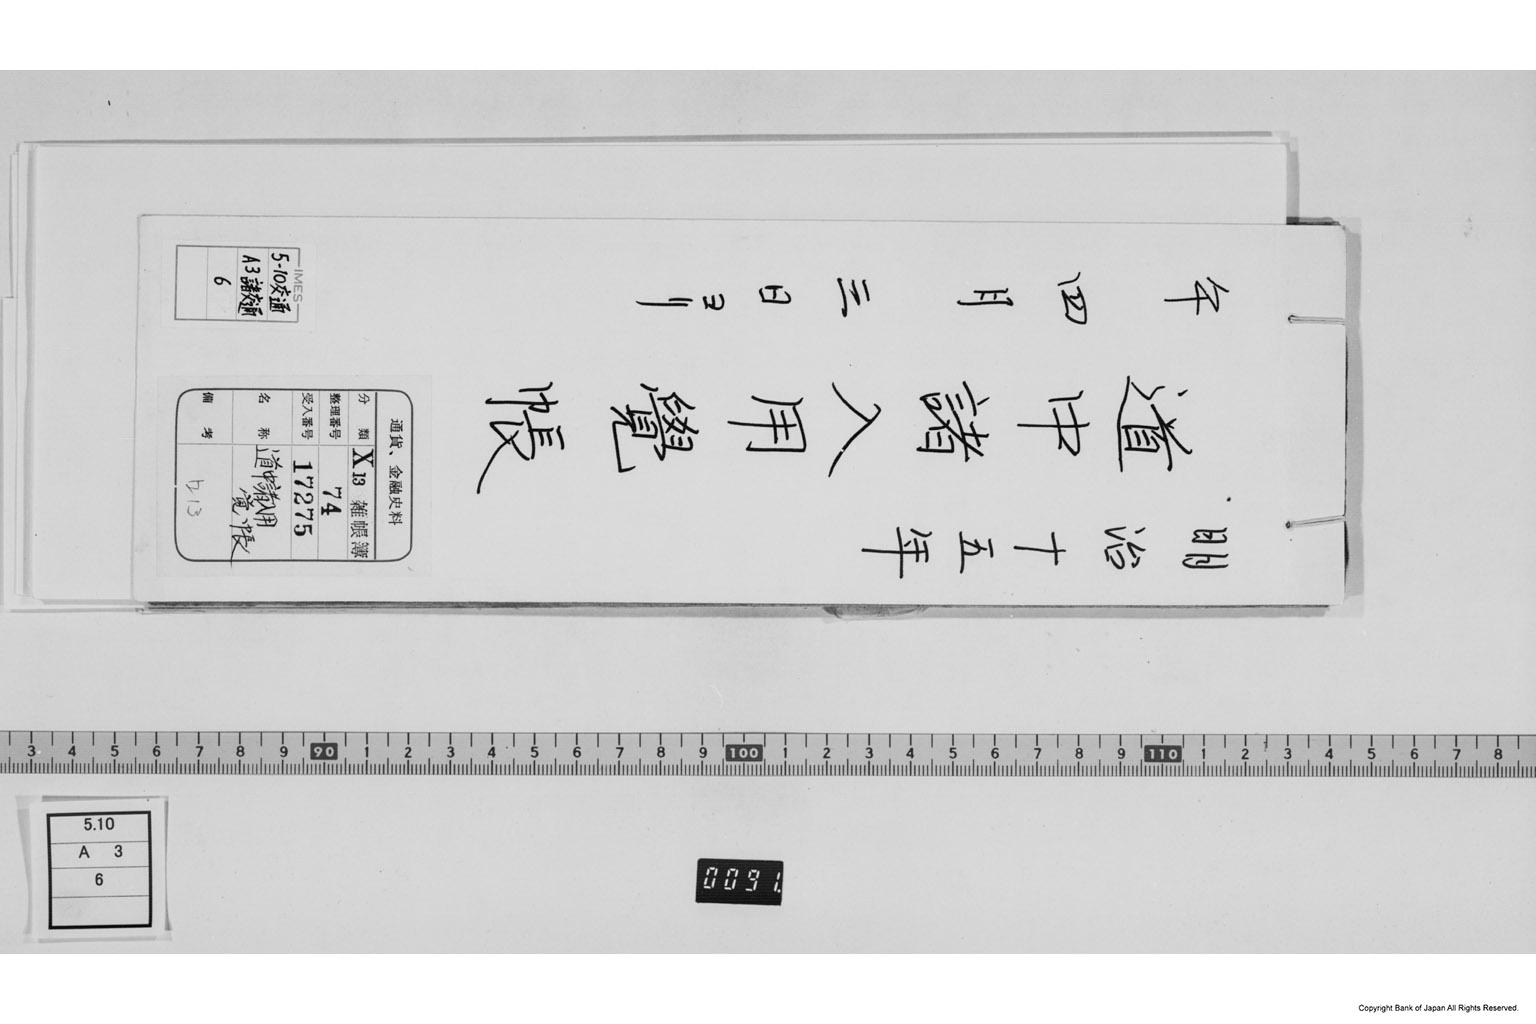 明治十五年
道中諸入用覺帳
午四月三日ヨリ
IMES
5-10交通
A3諸交通
6
通貨、金融史料
分類 X13 雑帳簿
整理番号 74
受入番号 17275
名称 道中諸入用覚帳
備考
3 4 5 6 7 8 9 90 1 2 3 4 5 6 7 8 9 100 1 2 3 4 5 6 7 8 9 110 1 2 3 4 5 6 7 8
5.10
A 3
6
0091
Copyright Bank of Japan All Rights Reserved.